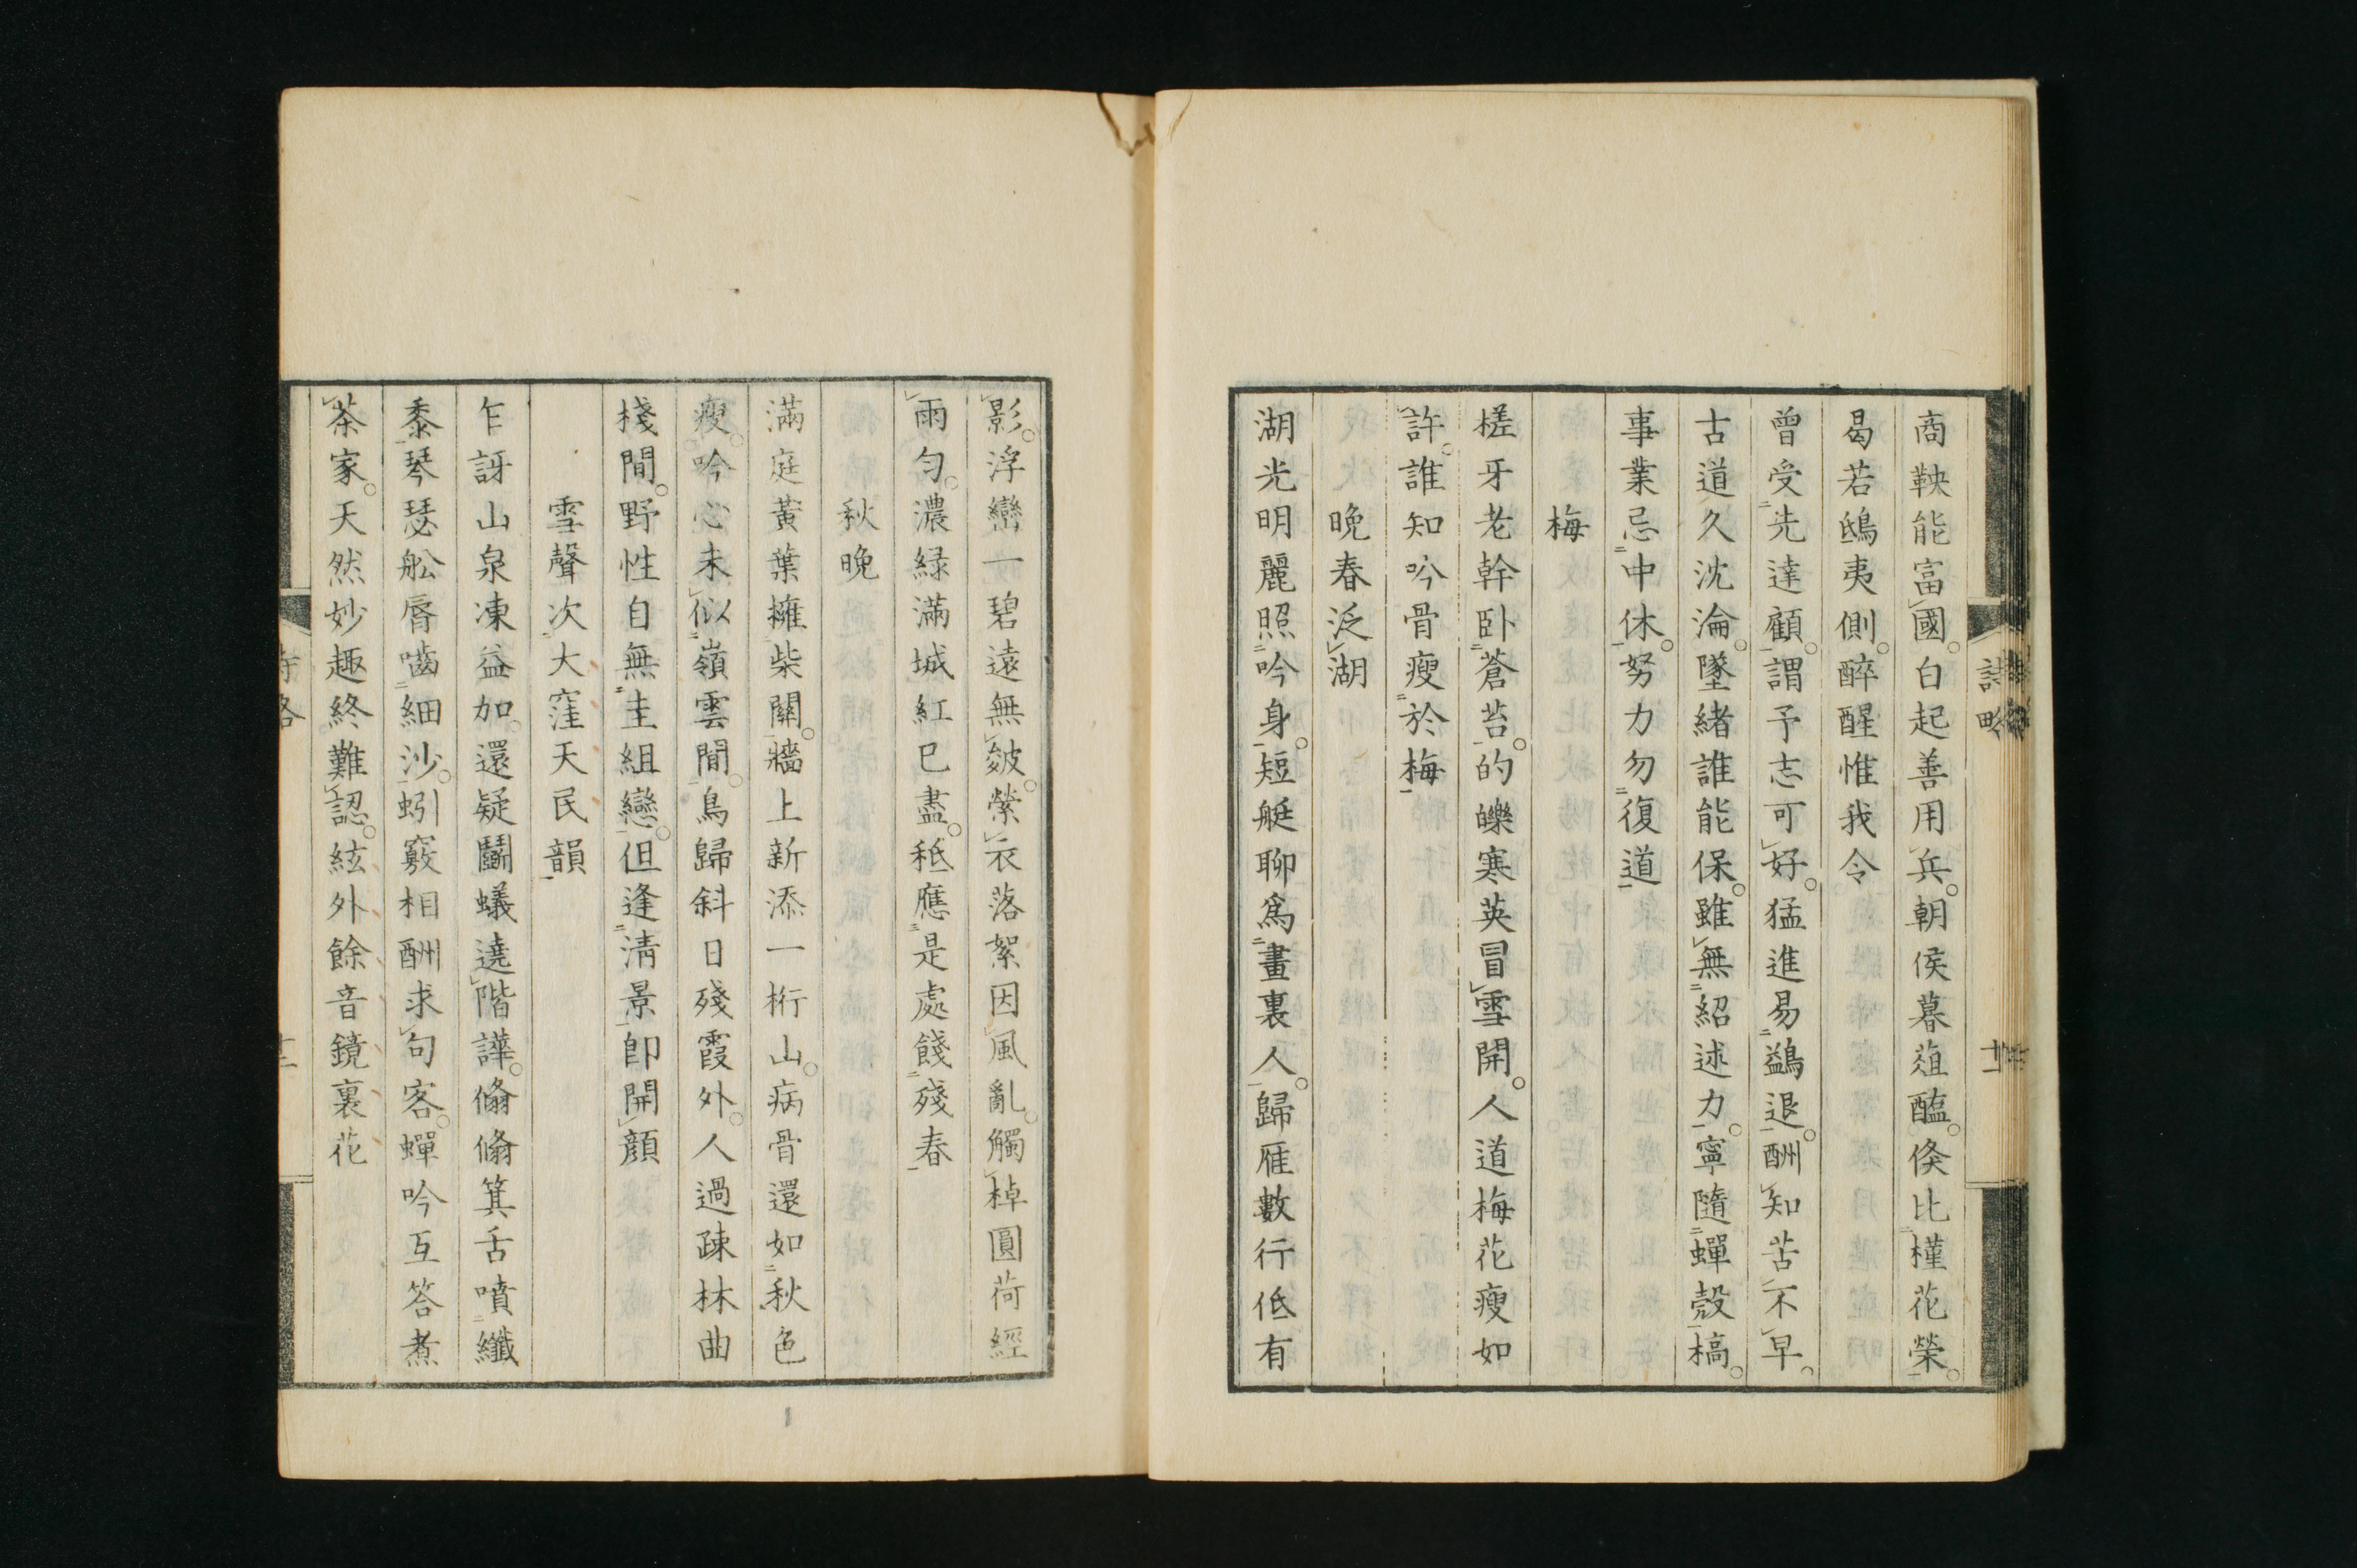 商鞅能富國。白起善用兵。朝侯暮葅醢。倏比槿花榮。
曷若鴟夷側。醉醒惟我令
曾受先達顧。謂予志可好。猛進易鷁退。酬知苦不早。
古道久沈淪。墜緒誰能保。雖無紹述力。寧隨蟬殼槁。
事業忌中休。努力勿復道
梅
槎牙老幹臥蒼苔。的皪寒英冒雪開。人道梅花瘦如
許。誰知吟骨瘦於梅
晚春泛湖
湖光明麗照吟身。短艇聊爲畫裏人。歸雁數行低有
詩略
十一
影。浮巒一碧遠無皴。縈衣落絮因風亂。觸棹圓荷經
雨勻。濃綠滿城紅已盡。秖應是處餞殘春
秋晚
滿庭黃葉擁柴關。牆上新添一桁山。病骨還如秋色
瘦。吟心未似嶺雲閒。鳥歸斜日殘霞外。人過疎林曲
棧間。野性自無圭組戀。但逢淸景卽開顏
雪聲次大窪天民韻
乍訝山泉凍益加。還疑鬪蟻遶階譁。翛翛箕舌噴纖
黍。琴瑟舩脣嚙細沙。蚓竅相酬求句客。蟬吟互答煮
茶家。天然妙趣終難認。絃外餘音鏡裏花